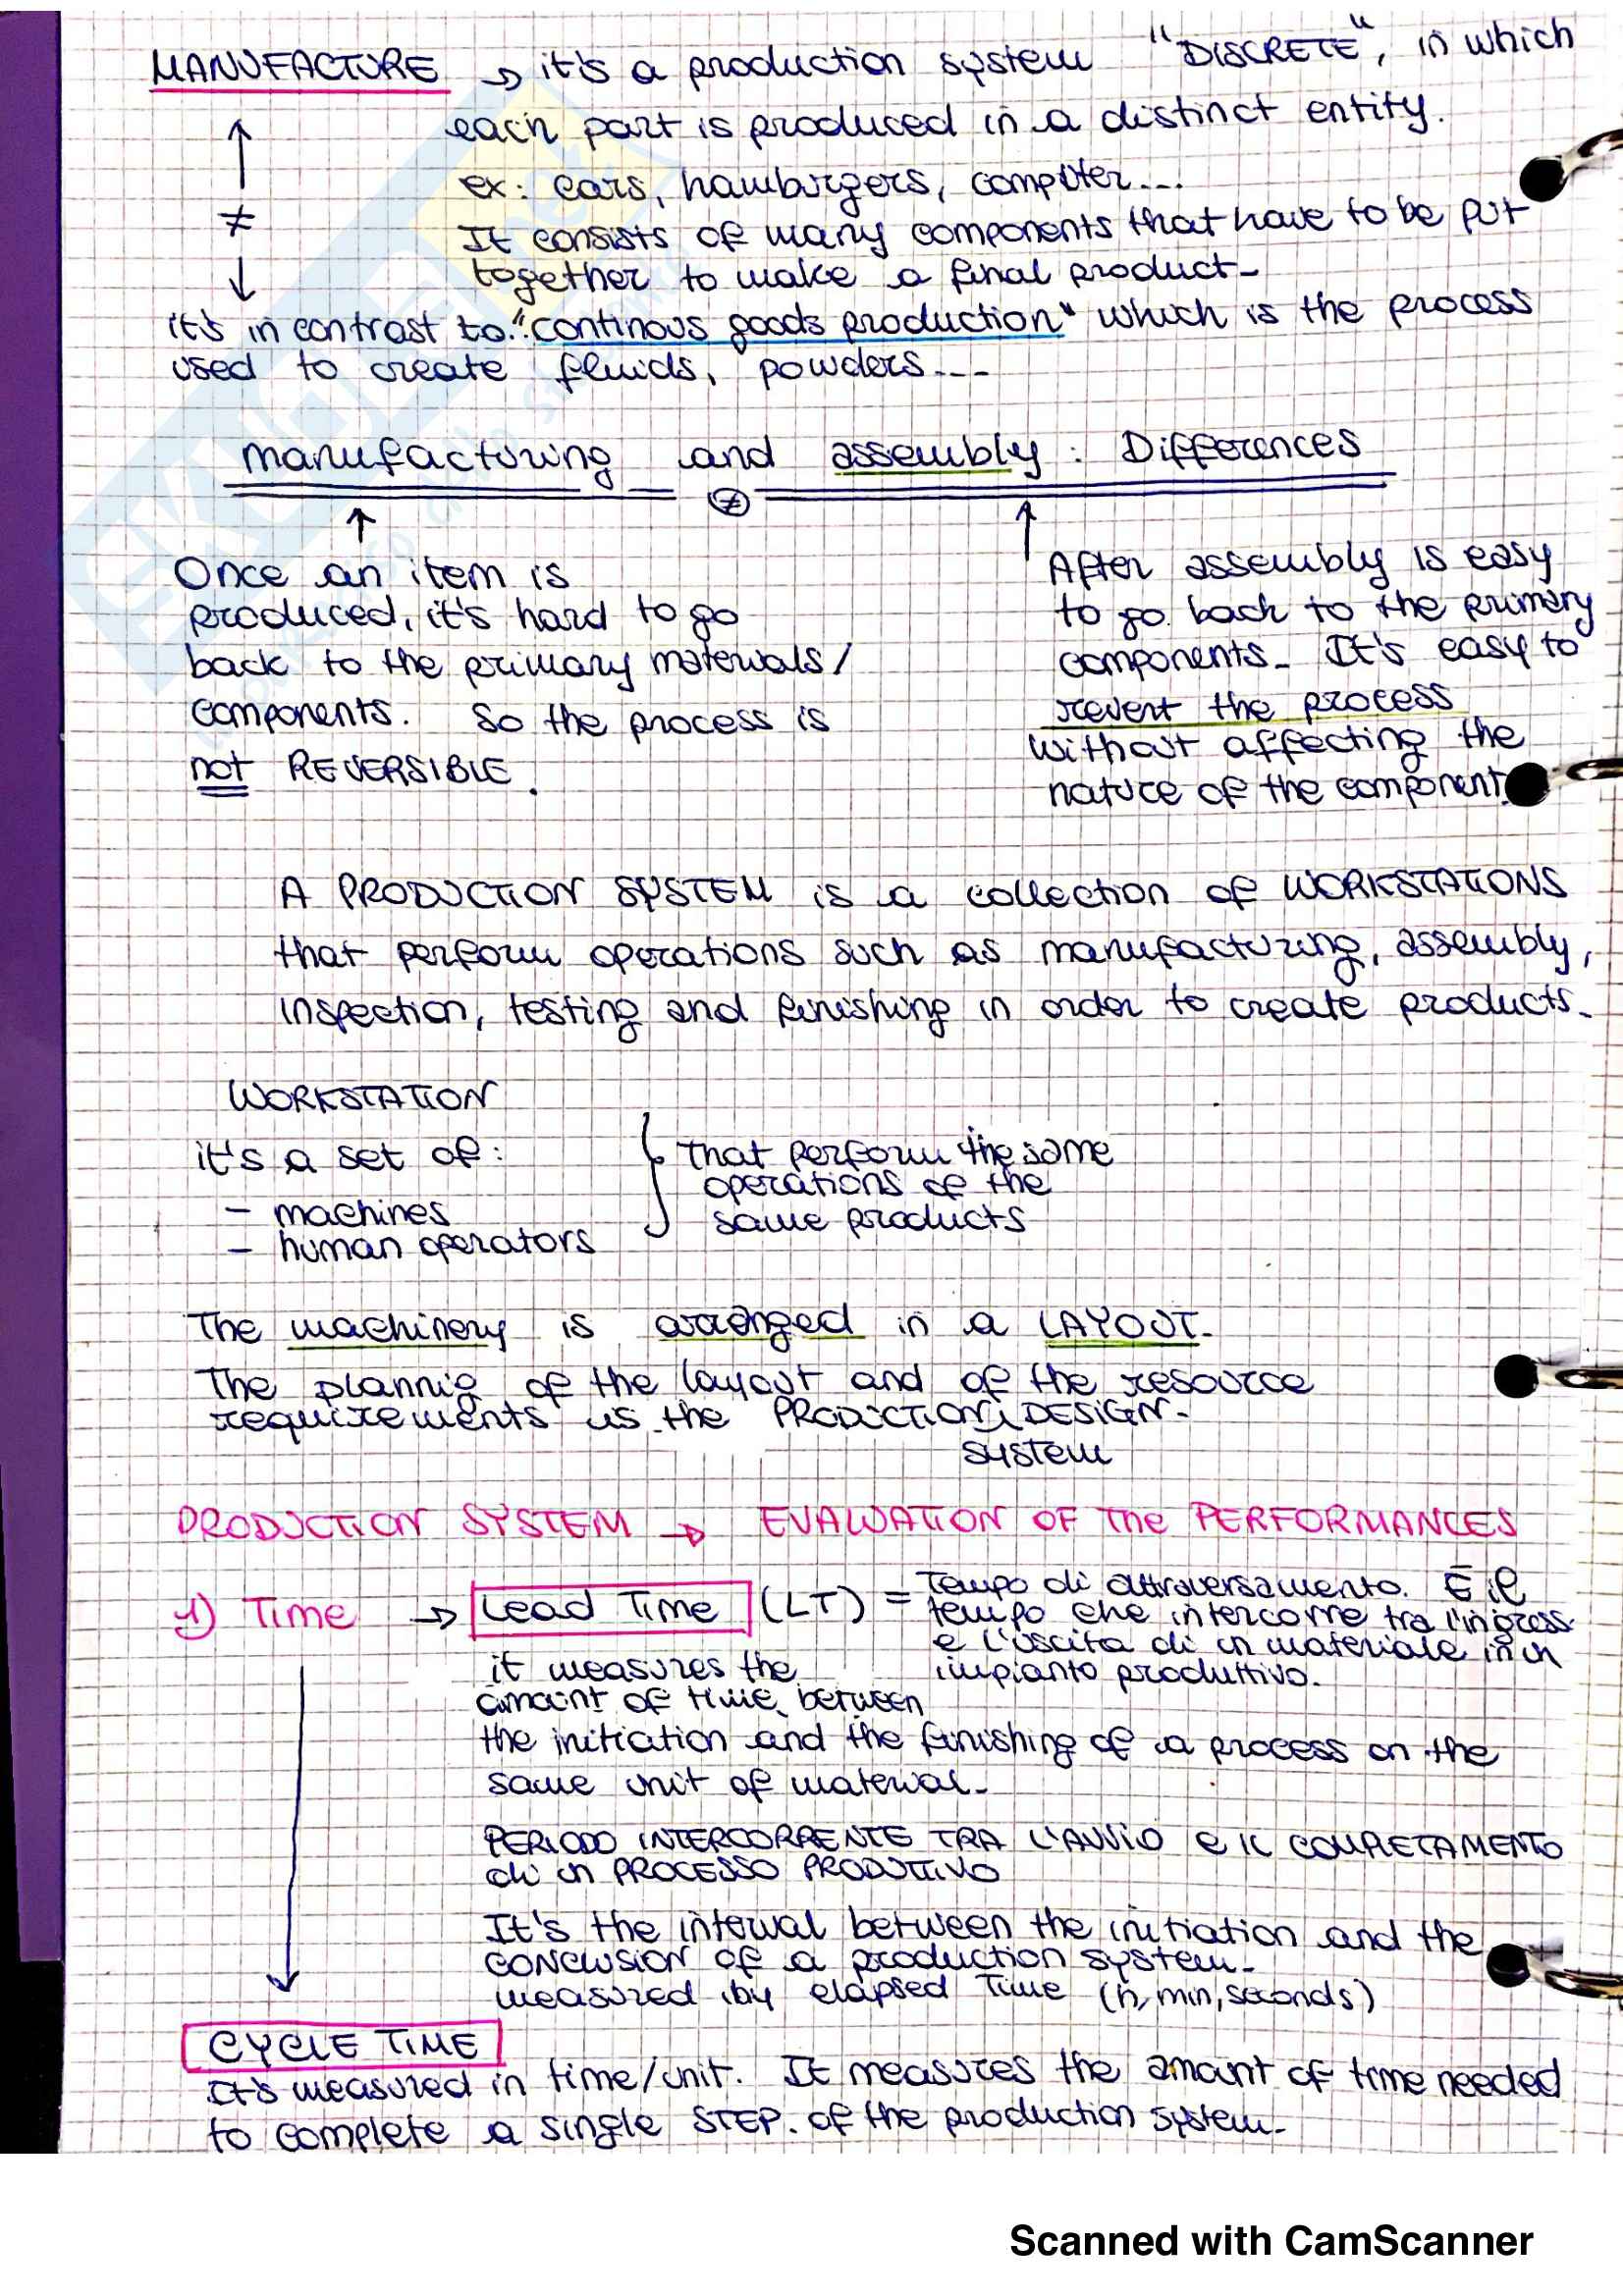 MANUFACTURE → it's a production system "DISCRETE", in which
each part is produced in a distinct entity.
ex: cars, hamburgers, computer...
≠
It consists of many components that have to be put
together to make a final product-
it's in contrast to "continous goods production" which is the process
used to create fluids, powders...
manufacturing and assembly: Differences
≠
Once an item is
produced, it's hard to go
back to the primary materials/
components. So the process is
not REVERSIBLE.
After assembly is easy
to go back to the primary
components- It's easy to
revert the process
without affecting the
nature of the component.
A PRODUCTION SYSTEM is a collection of WORKSTATIONS
that perform operations such as manufacturing, assembly,
inspection, testing and finishing in order to create products-
WORKSTATION
it's a set of:
- machines
- human operators
that perform the same
operations of the
same products
The machinery is arranged in a LAYOUT-
The plannig of the layout and of the resource
requirements is the PRODUCTION DESIGN-
system
PRODUCTION SYSTEM → EVALUATION OF The PERFORMANCES
1) Time → Lead Time (LT) = Tempo di attraversamento. È il
tempo che intercorre tra l'ingress
e l'uscita di un materiale in un
impianto produttivo.
it measures the
amount of time between
the initiation and the finishing of a process on the
same unit of material-
PERIODO INTERCORRENTE TRA L'AVVIO e IL COMPLETAMENTO
di un PROCESSO PRODUTTIVO
It's the interval between the initiation and the
conclusion of a production system-
measured by elapsed Time (h, min, seconds)
CYCLE TIME
It's measured in time/unit. It measures the amount of time needed
to complete a single STEP. of the production system-
Scanned with CamScanner